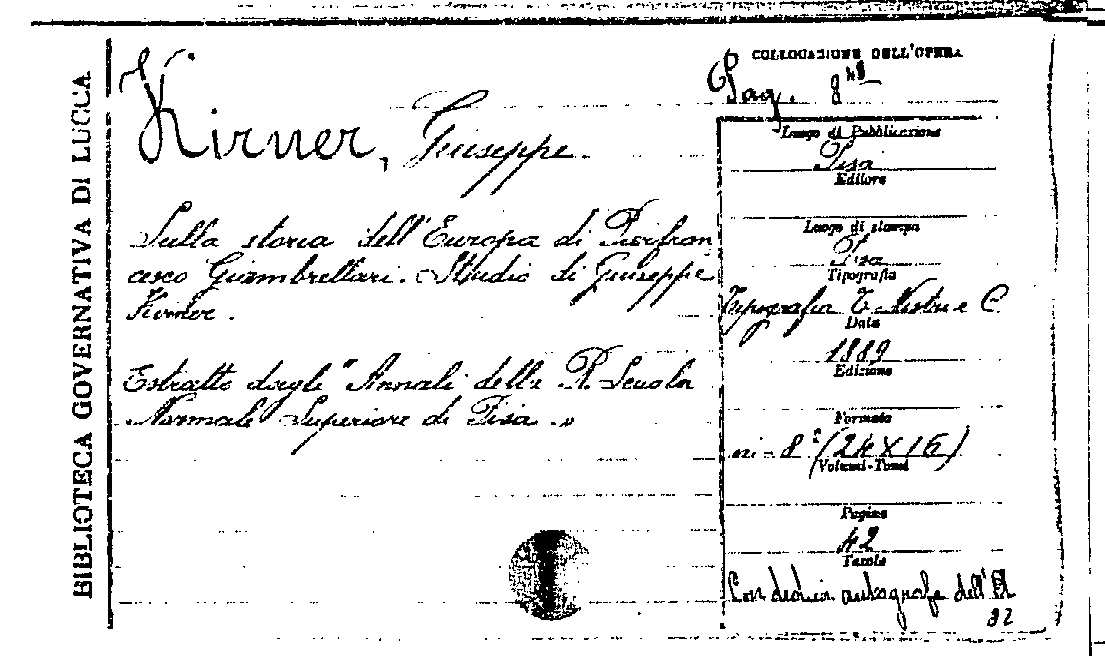 BIBLIOTECA GOVERNATIVA DI LUCCA
Kirner, Giuseppe.
Sulla storia dell'Europa di Pierfran
cesco Giambullari. Studio di Giuseppe
Kirner.
Estratto dagli "Annali della R. Scuola
Normale Superiore di Pisa."
COLLOCAZIONE DELL'OPERA
Luogo di Pubblicazione
Pisa
Editore
Luogo di stampa
Pisa
Tipografia
Tipografia T. Nistri e C
Data
1889
Edizione
Formato
in-8° (24X16)
(Volumi-Tomi
Pagine
42
Tavole
Con dedica autografa dell'A